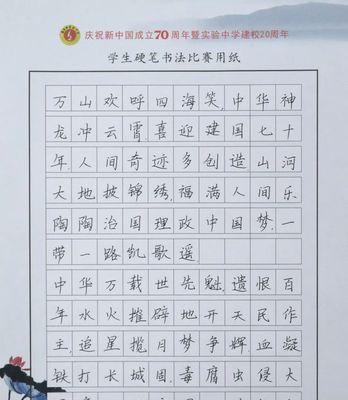 庆祝新中国成立70周年暨实验中学建校20周年
学生硬笔书法比赛用纸
万山欢呼四海笑中华神
龙冲云霄喜迎建国七十
年.人间奇迹多创造山河
大地披锦绣,福满人间乐
陶陶治国理政中国梦.一
带一路凯歌遥.
中华万载世先魁遗恨百
年水火摧辟地开天民作
主.追星揽月梦争辉血凝
铁打长城固.毒腐虫侵大